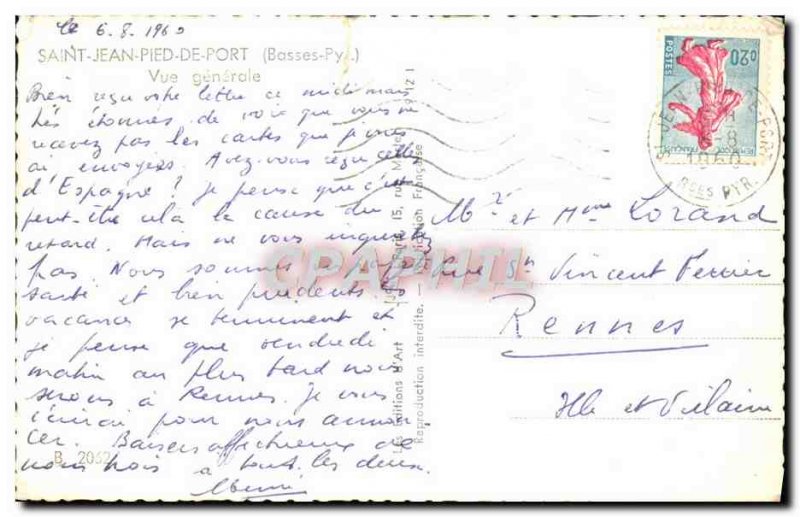 le 6.8.1960
SAINT-JEAN-PIED-DE-PORT (Basses-Pyr.)
Vue générale
Bien reçu votre lettre ce midi mais
très étonnés de voir que vous ne
recevez pas les cartes que je vous
ai envoyées. Avez-vous reçu celle
d'Espagne ? je pense que c'est
peut-être cela la cause du
retard. Mais ne vous inquiétez
pas Nous sommes
santé et bien prudents. Les
vacances se terminent et
je pense que vendredi
matin au plus tard nous
serons à Rennes. Je vous
pour nous annon
cer. Baisers affectueux de
nous trois à tous les deux.
B. 2062
Les éditions d'Art
15, rue
Reproduction interdite. — Française
CPAPHIL
POSTES
0,20
1960
BSES PYR.
Mr et Mme Lorand
3 Rue St Vincent Ferrier
Rennes
Ille et Vilaine